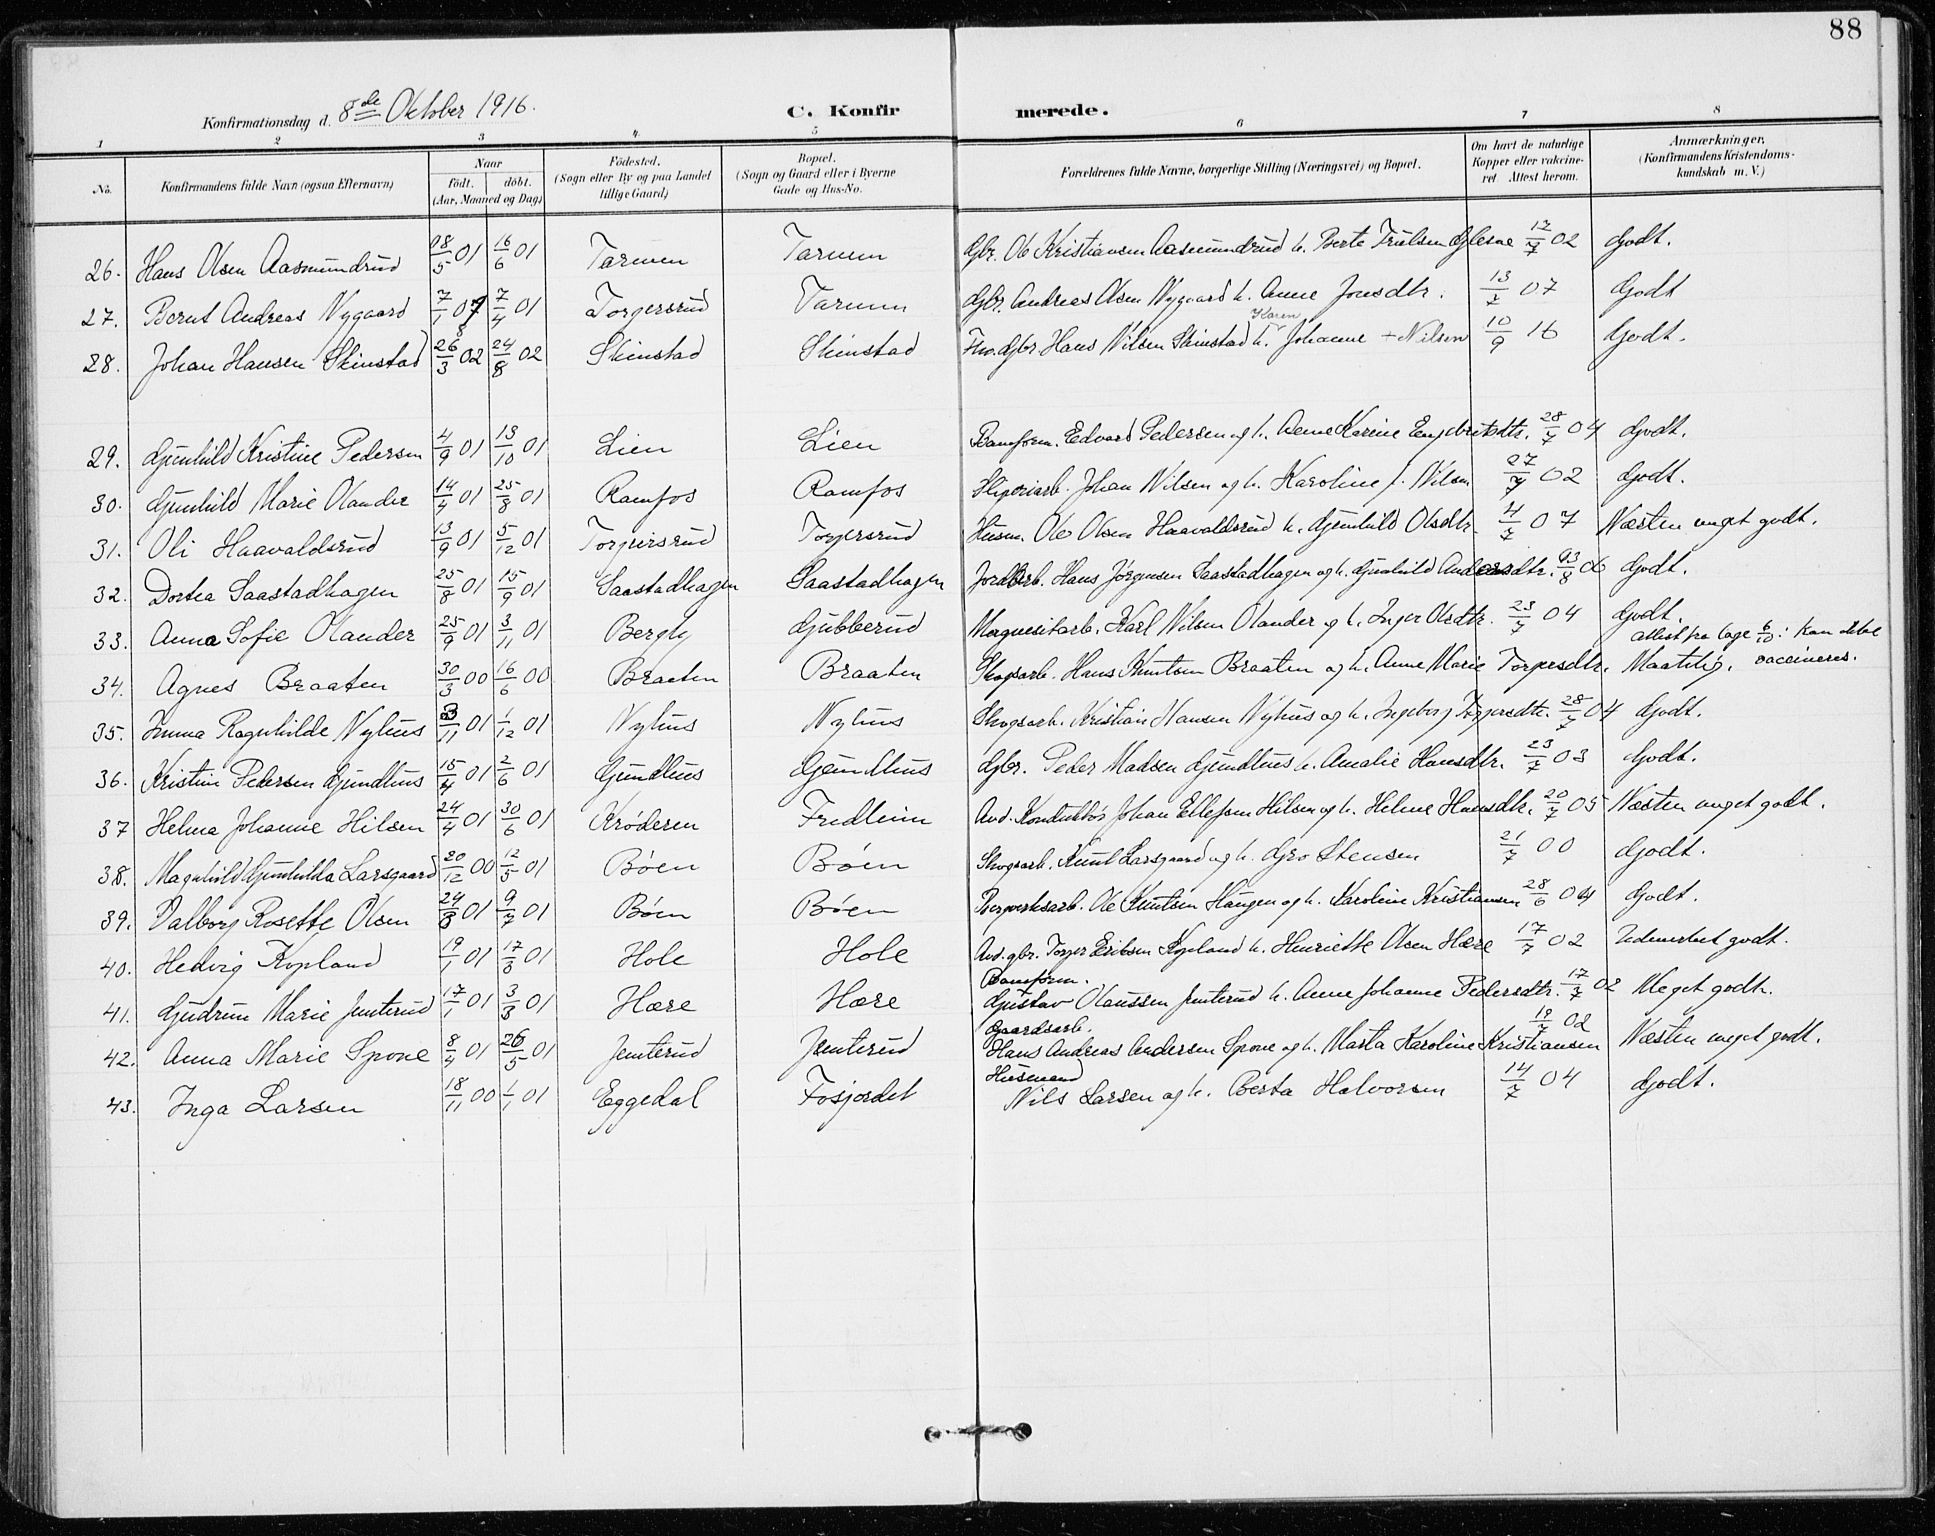 88
Konfirmationsdag d. 8de Oktober 1916.
C. Konfirmerede.
1 2 3 4. 5 6 7 8
No. Konfirmandens fulde Navn (ogsaa Efternavn) Naar født. døbt. (Aar, Maaned og Dag) Fødested. (Sogn eller By og paa Landet tillige Gaard) Bopæl. (Sogn og Gaard eller i Byerne Gade og Hus-No. Forældrenes fulde Navne, borgerlige Stilling (Næringsvei) og Bopæl. Om havt de naturlige Kopper eller vakcineret Attest herom. Anmærkninger. (Konfirmandens Kristendomskundskab m. V.)
26. Hans Olsen Aasmundrud 18/5 01 16/6 01 Tarmen Tarmen Gbr. Ole Kristiansen Aasmundrud h. Berte Trulsen Glesne 12/7 02 Godt.
27. Bernt Andreas Nygaard 7/1 07 7/4 01 Torgersrud Tarmen Gbr. Andreas Olsen Nygaard h. Anne Jonsdtr. 13/7 07 Godt
28. Johan Hansen Skinstad 26/3 02 24/8 02 Skinstad Skinstad Fhv. Gbr. Hans Nilsen Skinstad h. Karen Johanne + Nilsen 10/9 16 Godt.
29. Gunhild Kristine Pedersen 4/9 01 13/10 01 Lien Lien Baneform. Edvard Pedersen og h. Anne Karine Engebretsdtr. 28/7 04 Godt.
30. Gunhild Marie Olander 14/4 01 25/8 01 Ramfos Ramfos Sliperiarb. Johan Nilsen og h. Karoline f. Nilsen 27/7 02 Godt.
31. Oli Haavaldsrud 13/9 01 5/12 01 Torgersrud Torgersrud Husm. Ole Olsen Haavaldsrud h. Gunhild Olsdtr. 4/7 07 Næsten meget godt.
32. Dortea Saastadhagen 25/8 01 15/9 01 Saastadhagen Saastadhagen Jordarb. Hans Jørgensen Saastadhagen og h. Gunhild Andersdtr. 23/8 06 Godt.
33. Anna Sofie Olander 25/9 01 3/11 01 Bergly Gubberud Magnesitarb. Karl Nilsen Olander og h. Inger Olsdtr. 23/7 04 Godt.
34. Agnes Braaten 30/3 00 16/6 00 Braaten Braaten Skogsarb. Hans Knutsen Braaten og h. Anne Marie Torgersdtr. Maatelig. attest fra læge 6/10: Kan ikke vaccineres.
35. Emma Ragnhilde Nyhus 3/11 01 1/12 01 Nyhus Nyhus Skogsarb. Kristian Hansen Nyhus og h. Ingeborg Torgersdtr. 28/7 04 Godt.
36. Kristine Pedersen Gundhus 15/4 01 2/6 01 Gundhus Gundhus Gbr. Peder Madsen Gundhus h. Amalie Hansdtr. 23/7 03 Godt.
37 Helma Johanne Hilsen 24/4 01 30/6 01 Krøderen Fredheim And. Konduktør Johan Ellefsen Hilsen og h. Helene Hansdtr. 20/7 05 Næsten meget godt.
38. Magnhild Gunhilda Larsgaard 20/12 00 12/5 01 Bøen Bøen Skogsarb. Knut Larsgaard og h. Gro Stensen 21/7 00 Godt.
39. Valborg Rosette Olsen 24/3 01 9/7 01 Bøen Bøen Bergverksarb. Ole Knutsen Haugen og h. Karoline Kristiansen 28/6 04 Godt.
40. Hedvig Kopland 19/1 01 17/3 01 Hole Hole And. gbr. Torger Eriksen Kopland h. Henriette Olsen Hære 17/7 02 Udmerket godt.
41. Gudrun Marie Jenterud 17/1 01 3/3 01 Hære Hære Baneform. Gustav Olaussen Jenterud h. Anne Johanne Pedersdtr. 17/7 02 Meget godt.
42. Anna Marie Spone 8/4 01 26/5 01 Jenterud Jenterud Gaardsarb. Hans Andreas Andersen Spone og h. Marta Karoline Kristiansen 19/7 02 Næsten meget godt.
43. Inga Larsen 18/11 00 1/1 01 Eggedal Fosjordet Husmand Nils Larsen og h. Berta Halvorsen 14/7 04 Godt.